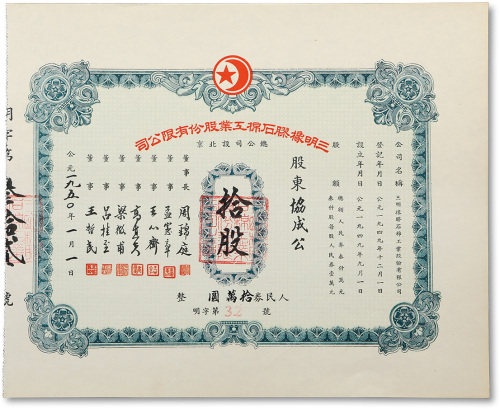 三明橡膠石棉工業股份有限公司
總公司設北京
公司名稱 三明橡膠石棉工業股份有限公司
登記年月日 公元一九四九年十二月一日
設立年月日 公元一九四九年九月一日
股額
總額人民券壹仟萬元
每股人民券壹萬元
股東 協成公
拾股
人民券拾萬圓 整
明字第32號
董事長 周錦庭
董事 孟憲章
董事 王心齋
董事
董事 梁徽甫
董事 呂桂至
董事 王哲民
公元一九五〇年一月一日
明字第叁拾貳號